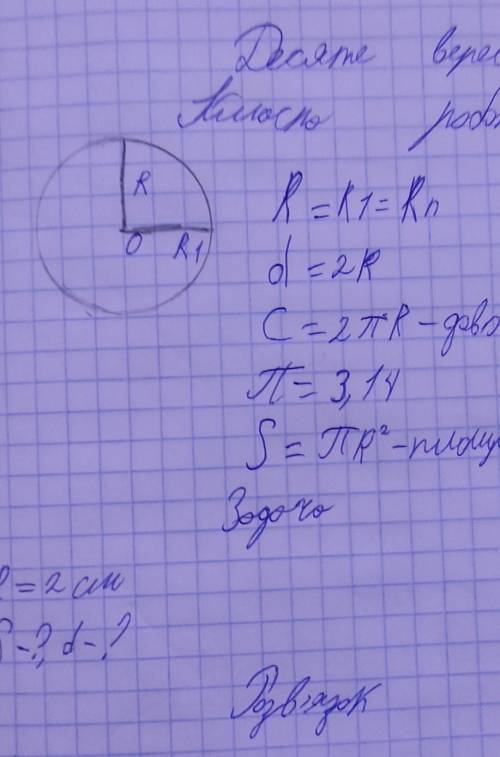 Десяте верес
Класна робо
R
O R1
R = R1 = Rn
d = 2R
C = 2πR - довж
π = 3,14
S = πR² - площ
Задача
R = 2 см
S - ?, d - ?
Розв'язок